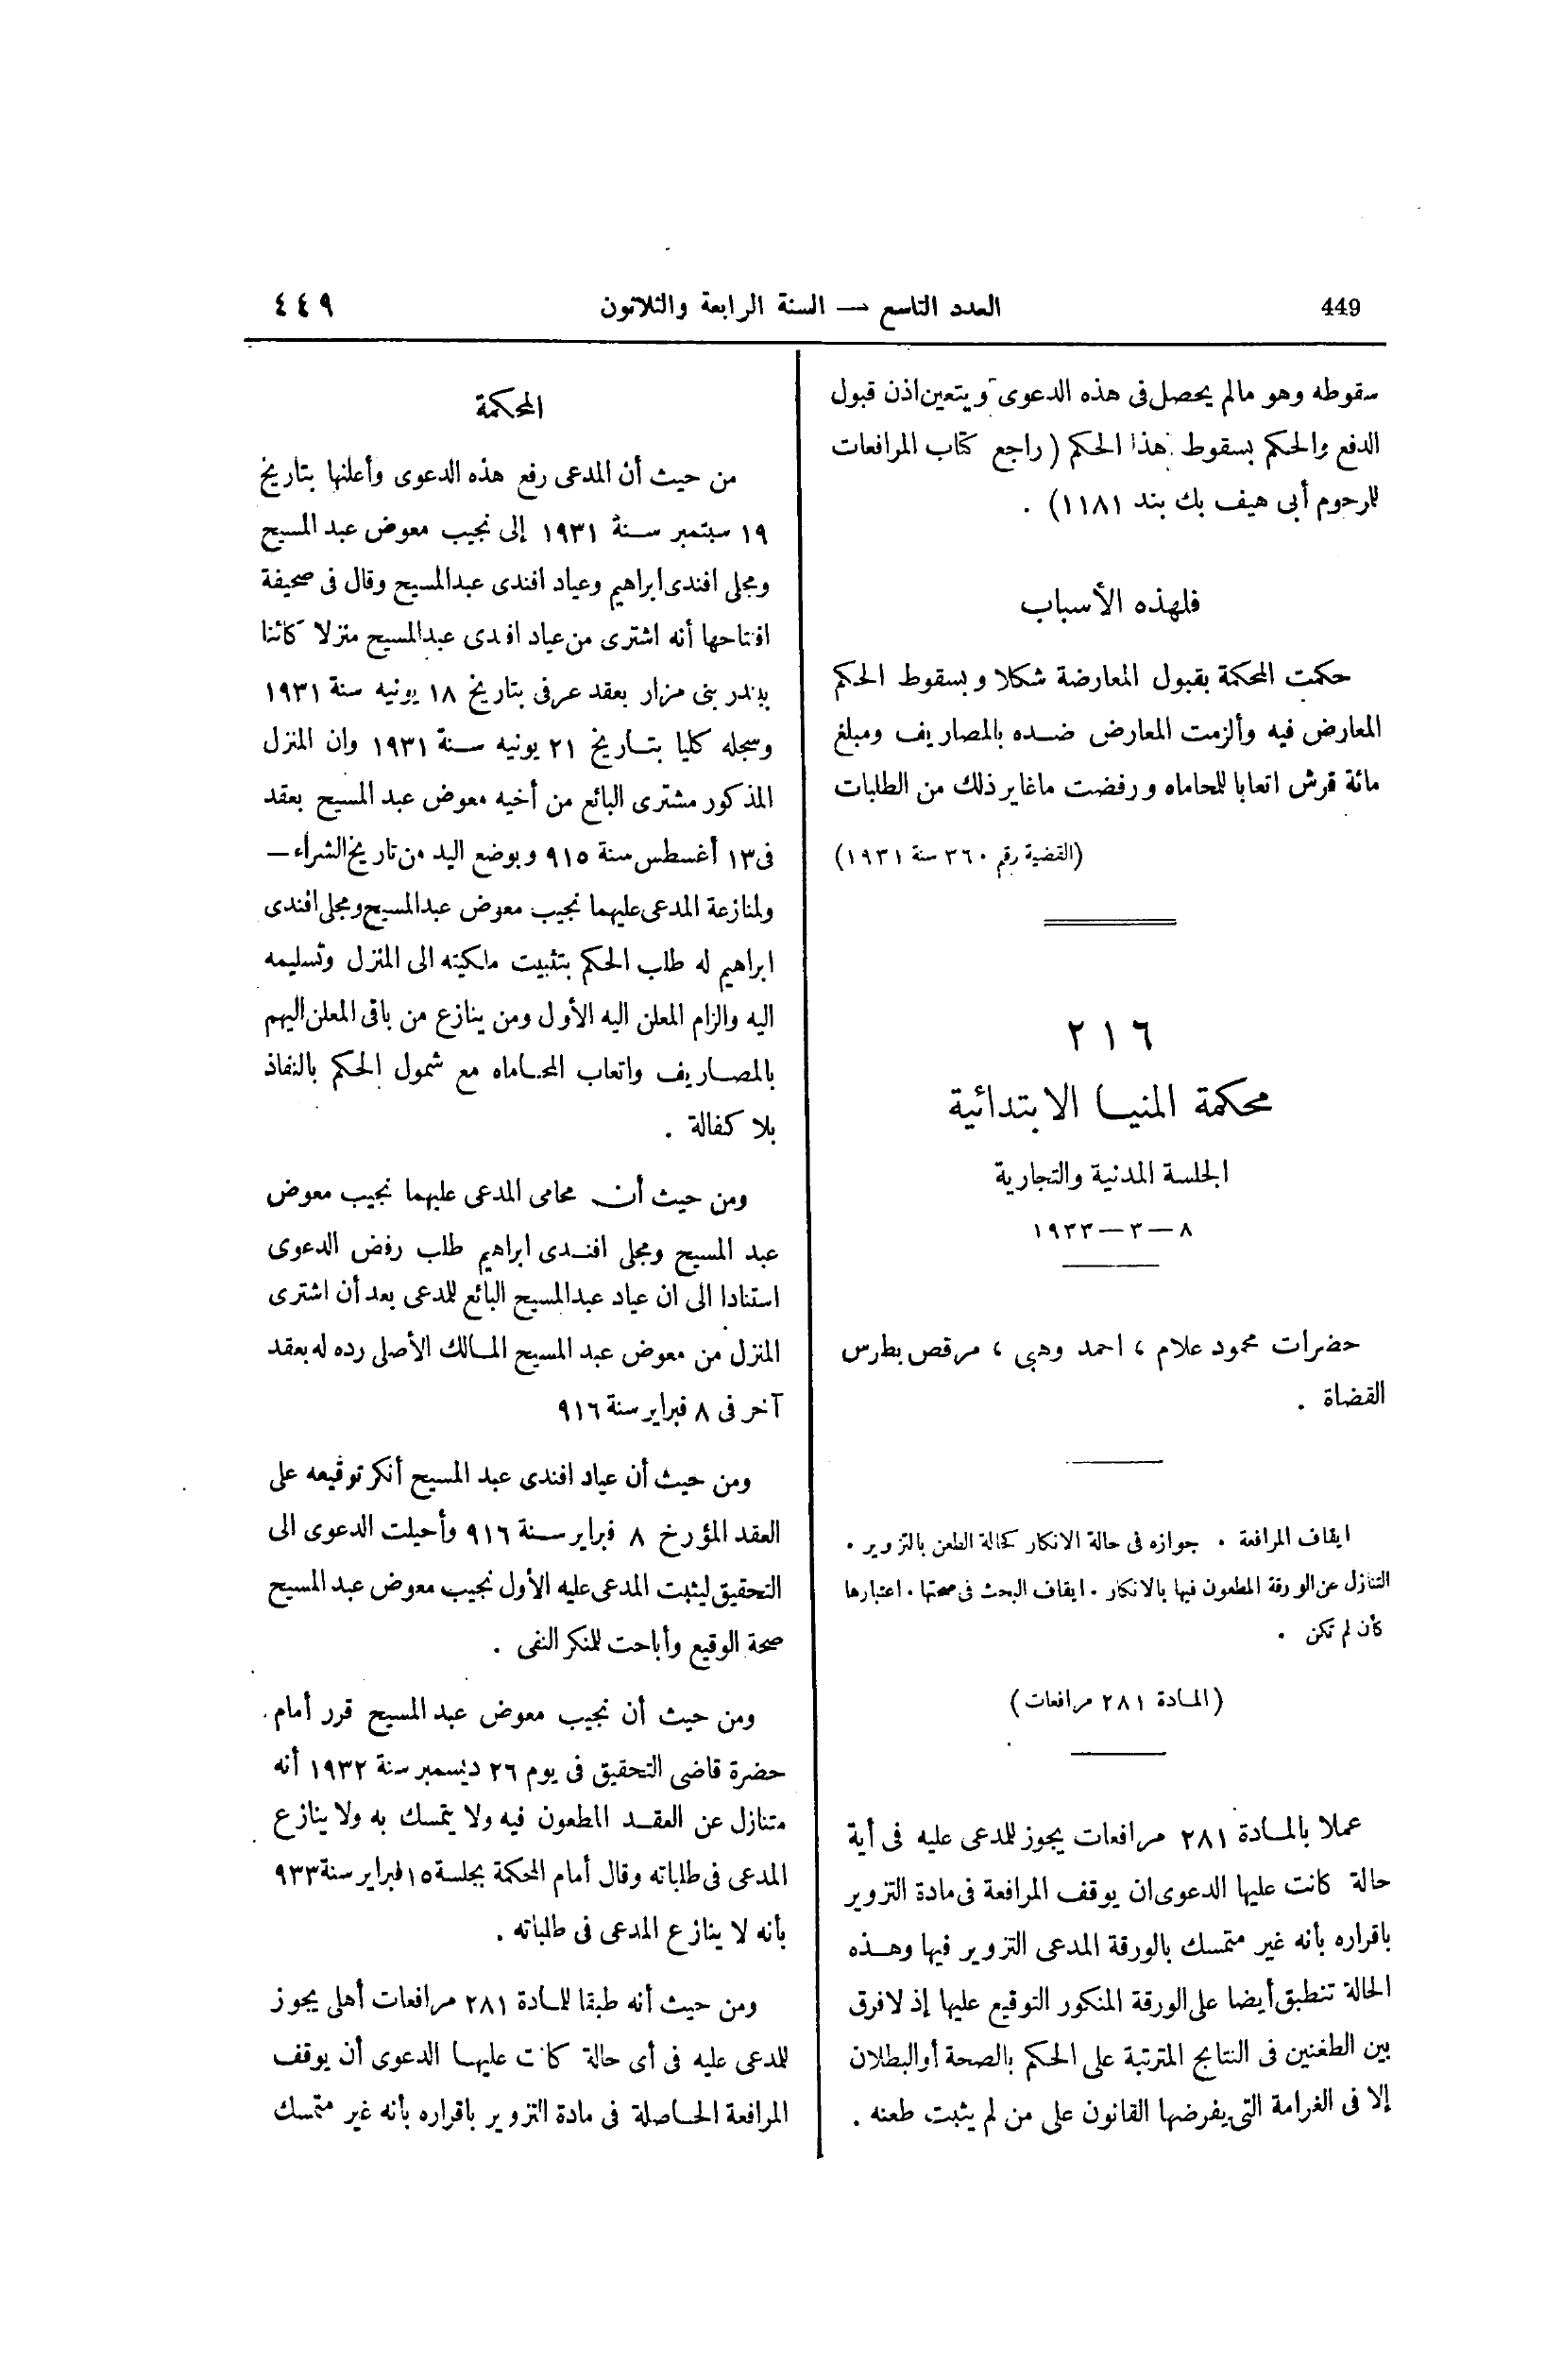 449
العدد التاسع — السنة الرابعة والثلاثون
٤٤٩
سقوطه وهو مالم يحصل فى هذه الدعوى ويتعين اذن قبول
الدفع والحكم بسقوط هذا الحكم ( راجع كتاب المرافعات
للرحوم أبى هيف بك بند ١١٨١) .
فلهذه الأسباب
حكمت المحكمة بقبول المعارضة شكلا وبسقوط الحكم
المعارض فيه وألزمت المعارض ضده بالمصاريف ومبلغ
مائة قرش اتعابا للحاماه ورفضت ماغاير ذلك من الطلبات
(القضية رقم ٣٦٠ سنة ١٩٣١)
٢١٦
محكمة المنيا الابتدائية
الجلسة المدنية والتجارية
٨ — ٣ — ١٩٣٣
حضرات محمود علام ، احمد وهبى ، مرقص بطرس
القضاة .
ايقاف المرافعة . جوازه فى حالة الانكار كحالة الطعن بالتزوير .
التنازل عن الورقة المطعون فيها بالانكار . ايقاف البحث فى صحتها . اعتبارها
كأن لم تكن .
(المادة ٢٨١ مرافعات)
عملا بالمادة ٢٨١ مرافعات يجوز للمدعى عليه فى أية
حالة كانت عليها الدعوى ان يوقف المرافعة فى مادة التزوير
باقراره بأنه غير متمسك بالورقة المدعى التزوير فيها وهذه
الحالة تنطبق أيضا على الورقة المنكور التوقيع عليها إذ لا فرق
بين الطغنين فى النتايج المترتبة على الحكم بالصحة أو البطلان
إلا فى الغرامة التى يفرضها القانون على من لم يثبت طعنه .
المحكمة
من حيث أن المدعى رفع هذه الدعوى وأعلنها بتاريخ
١٩ سبتمبر سنة ١٩٣١ إلى نجيب معوض عبد المسيح
ومجلى افندى ابراهيم وعياد افندى عبد المسيح وقال فى صحيفة
افتتاحها أنه اشترى من عياد افندى عبد المسيح منزلا كائنا
ببندر بنى مزار بعقد عرفى بتاريخ ١٨ يونيه سنة ١٩٣١
وسجله كليا بتاريخ ٢١ يونيه سنة ١٩٣١ وان المنزل
المذكور مشترى البائع من أخيه معوض عبد المسيح بعقد
فى ١٣ أغسطس سنة ٩١٥ وبوضع اليد من تاريخ الشراء —
ولمنازعة المدعى عليهما نجيب معوض عبد المسيح ومجلى افندى
ابراهيم له طلب الحكم بتثبيت ملكيته الى المنزل وتسليمه
اليه والزام المعلن اليه الأول ومن ينازع من باقى المعلن اليهم
بالمصاريف واتعاب المحاماه مع شمول الحكم بالنفاذ
بلا كفالة .
ومن حيث أن محامى المدعى عليهما نجيب معوض
عبد المسيح ومجلى افندى ابراهيم طلب رفض الدعوى
استنادا الى ان عياد عبد المسيح البائع للمدعى بعد أن اشترى
المنزل من معوض عبد المسيح المالك الأصلى رده له بعقد
آخر فى ٨ فبراير سنة ٩١٦
ومن حيث أن عياد افندى عبد المسيح أنكر توقيعه على
العقد المؤرخ ٨ فبراير سنة ٩١٦ وأحيلت الدعوى الى
التحقيق ليثبت المدعى عليه الأول نجيب معوض عبد المسيح
صحة الوقيع وأباحت للمنكر النفى .
ومن حيث أن نجيب معوض عبد المسيح قرر أمام
حضرة قاضى التحقيق فى يوم ٢٦ ديسمبر سنة ١٩٣٢ أنه
متنازل عن العقد المطعون فيه ولا يتمسك به ولا ينازع
المدعى فى طلباته وقال أمام المحكمة بجلسة ١٥ فبراير سنة ٩٣٣
بأنه لا ينازع المدعى فى طلباته .
ومن حيث أنه طبقا للمادة ٢٨١ مرافعات أهلى يجوز
للمدعى عليه فى أى حالة كانت عليها الدعوى أن يوقف
المرافعة الحاصلة فى مادة التزوير باقراره بأنه غير متمسك